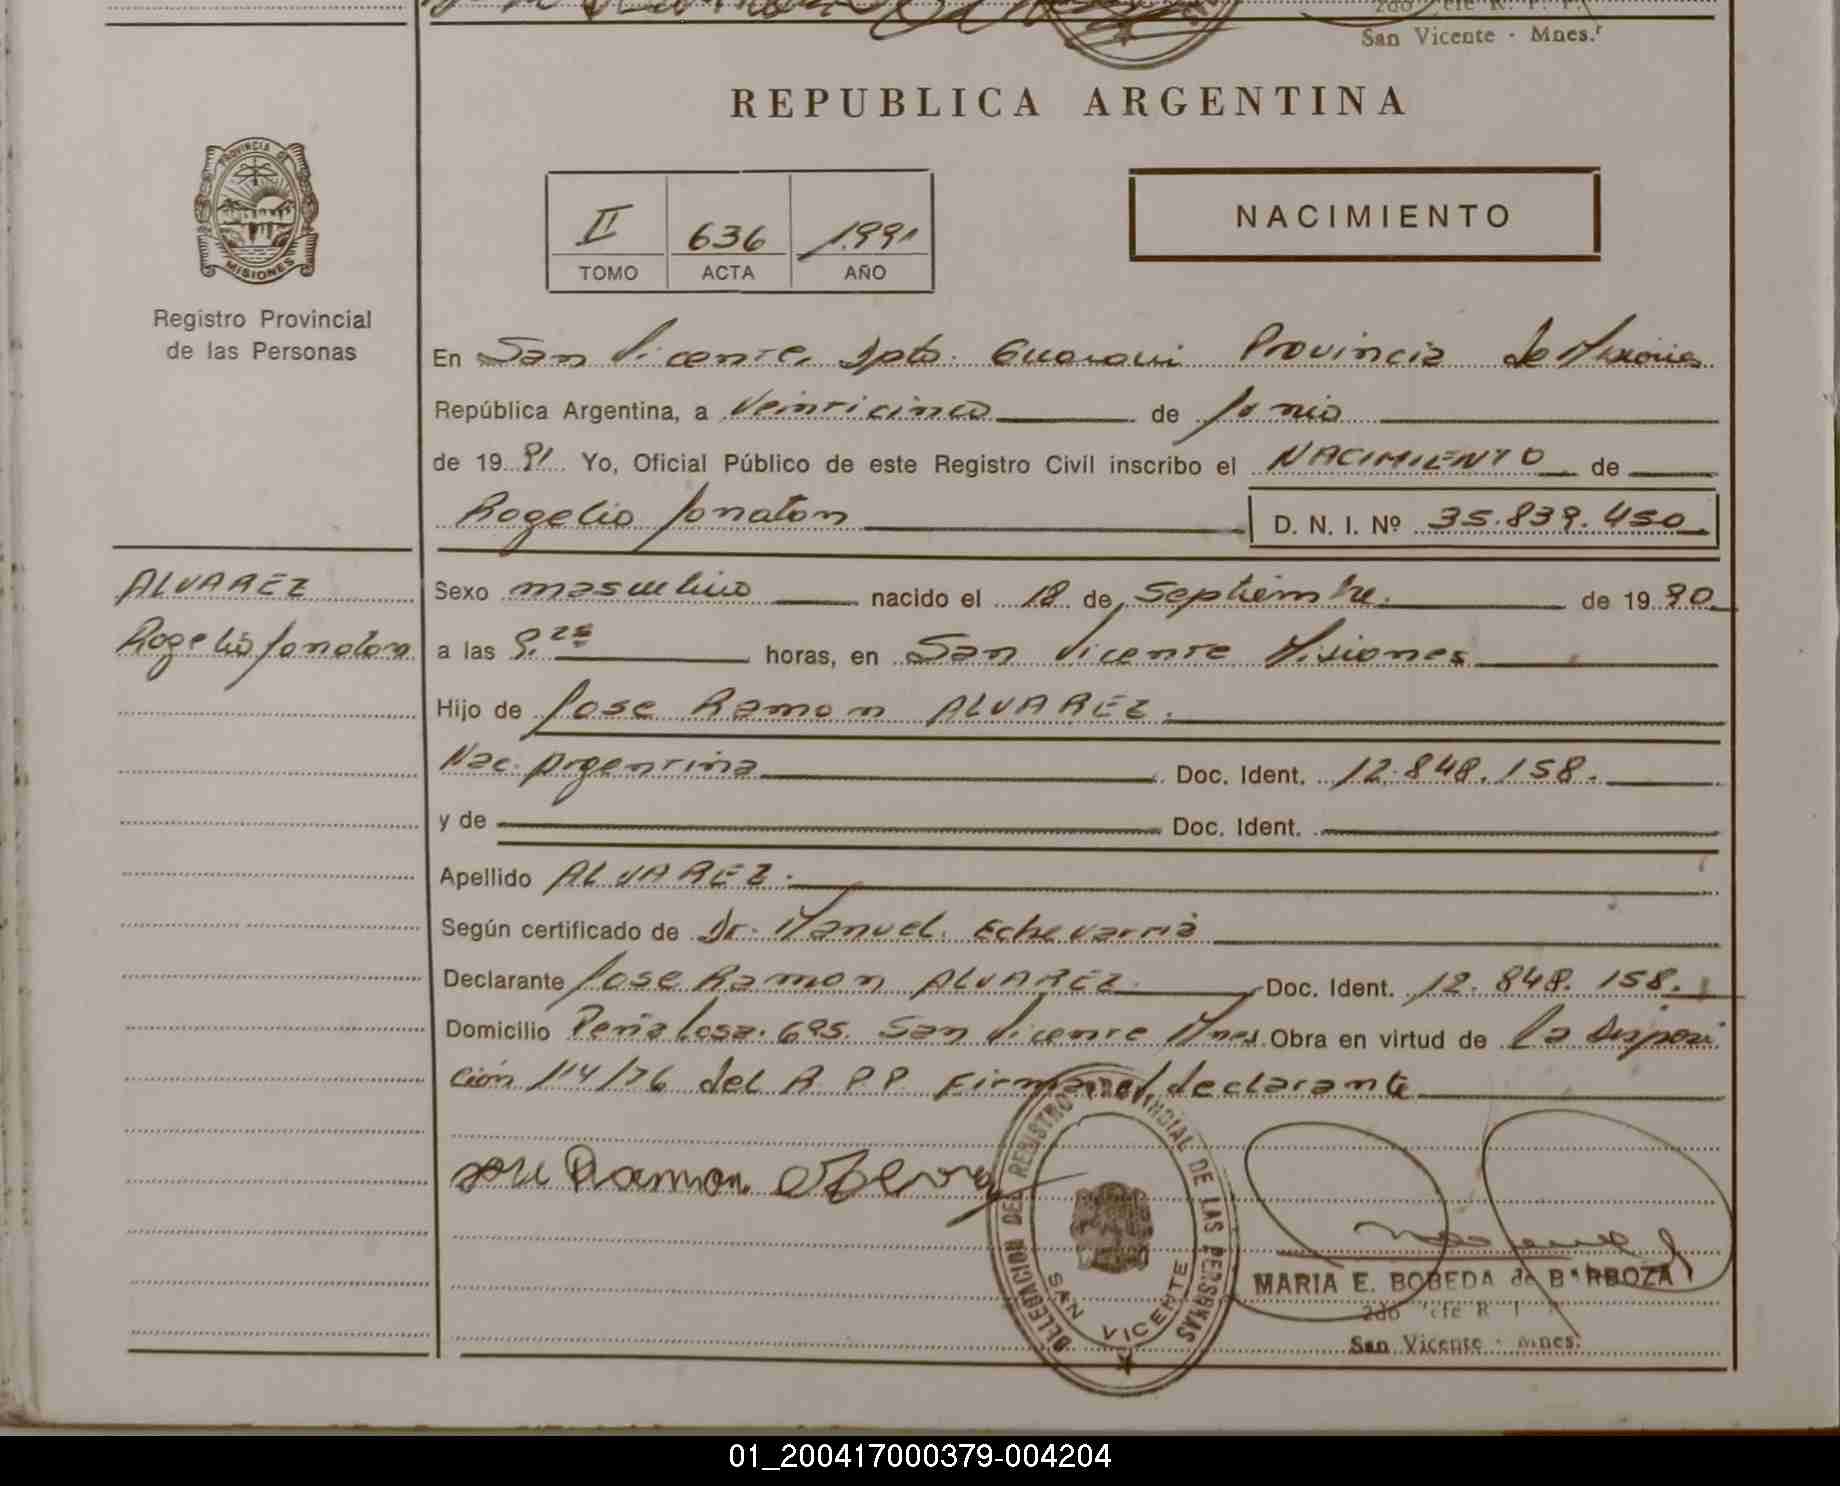 San Vicente - Mnes.
REPUBLICA ARGENTINA
PROVINCIA DE
MISIONES
Registro Provincial
de las Personas
II 636 1.991
TOMO ACTA AÑO
NACIMIENTO
En San Vicente, Dpto. Guarani Provincia de Misiones
República Argentina, a Veinticinco de Junio
de 19 91 Yo, Oficial Público de este Registro Civil inscribo el NACIMIENTO de
Rogelio Jonaton D. N. I. Nº 35.839.450
ALVAREZ
Rogelio Jonaton
Sexo masculino nacido el 18 de Septiembre. de 19 90
a las 9.25 horas, en San Vicente Misiones
Hijo de Jose Ramon ALVAREZ.
Nac. Argentina Doc. Ident. 12.848.158.
y de Doc. Ident.
Apellido ALVAREZ.
Según certificado de Dr. Manuel. Echevarria
Declarante Jose Ramon ALVAREZ. Doc. Ident. 12.848.158.
Domicilio Peñalosa. 695. San Vicente Mnes Obra en virtud de la disposi
ción 114/76 del R.P.P. Firma el declarante
Jose Ramon
DELEGACION DEL REGISTRO PROVINCIAL DE LAS PERSONAS
SAN VICENTE
MARIA E. BOBEDA de BARBOZA
2do
San Vicente - Mnes.
01_200417000379-004204